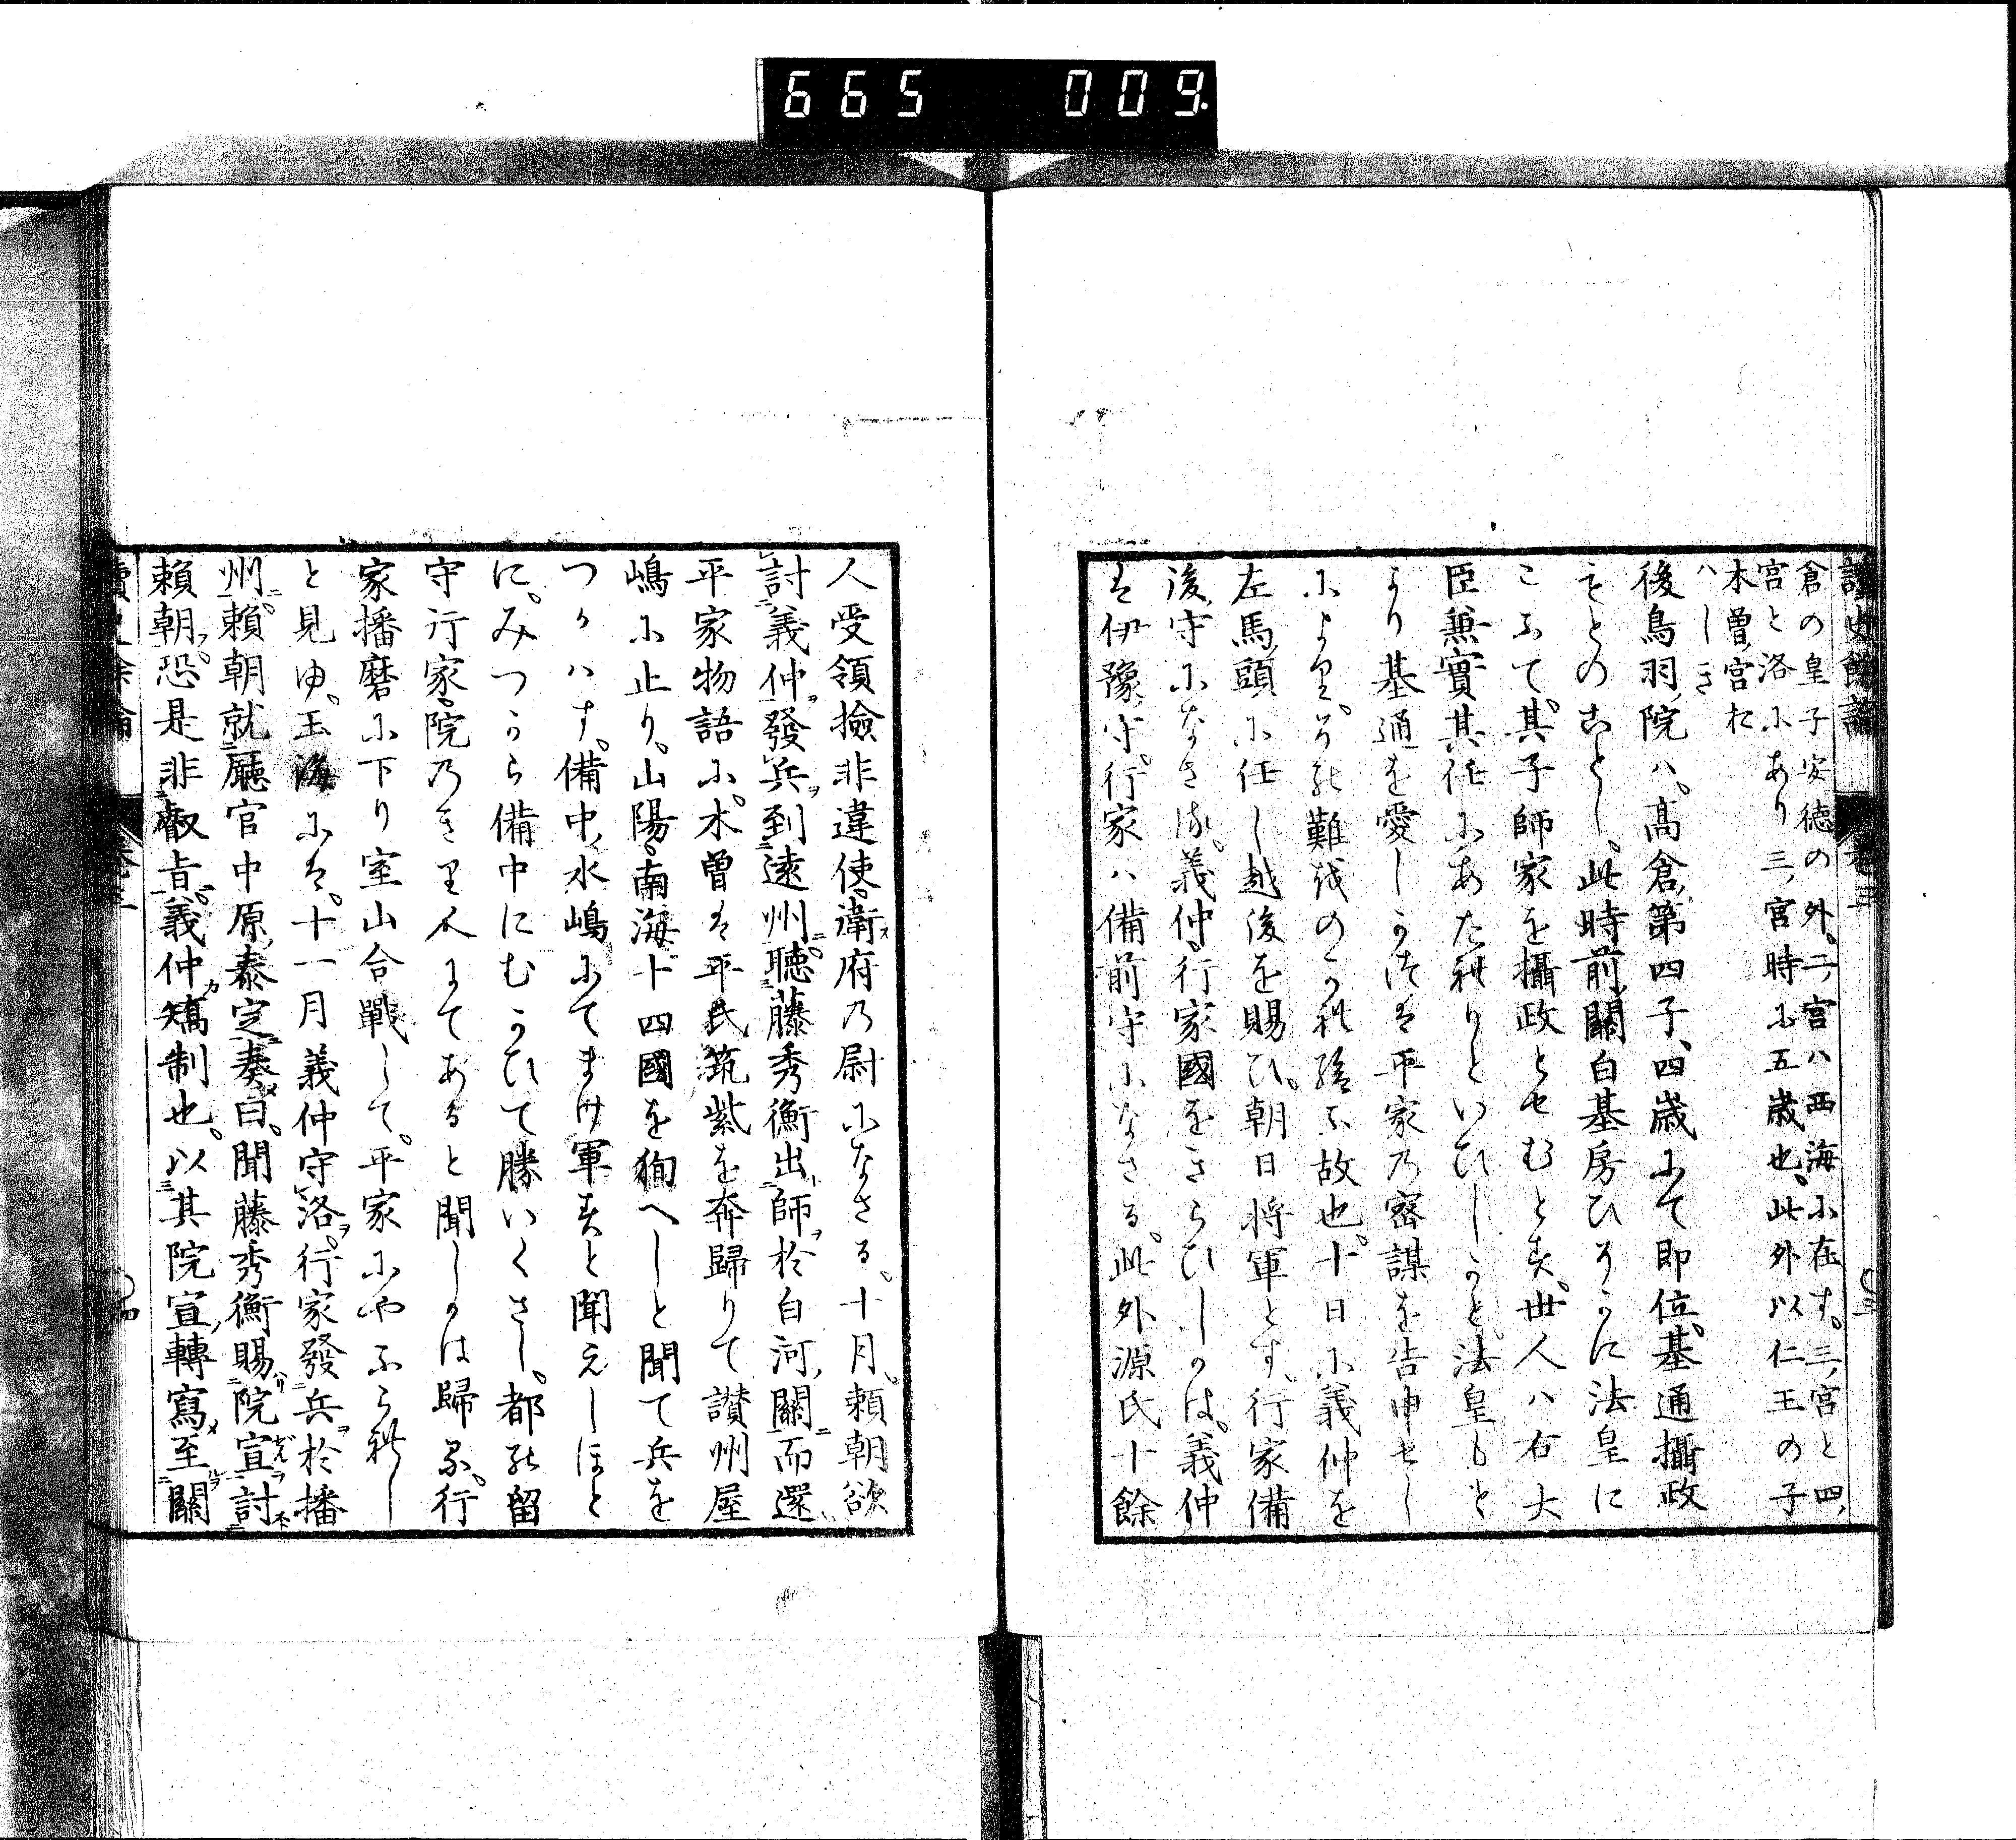 665 009.
讀史餘論 卷三
倉の皇子安徳の外。二ノ宮ハ西海に在す。三ノ宮と四ノ
宮と洛にあり三ノ宮時に五歳也。此外以仁王の子
木曽ノ宮お
ハしき
後鳥羽ノ院ハ。高倉ノ第四子。四歳にて即位。基通攝政
もとのことし。此時前ノ關白基房ひそかに法皇に
こふて。其子師家を攝政とせむとす。世人ハ右大
臣兼實其任にあたれりといひしかと。法皇もと
より基通を愛しかつは平家乃密謀を告申せし
によりて。その難をのかれ給ふ故也。十日に義仲を
左馬ノ頭に任し越後を賜ひ。朝日将軍とす。行家備
後ノ守になさる。義仲。行家國をきらひしかは。義仲
は伊豫ノ守。行家ハ備前守になさる。此外源氏十餘
人受領撿非違使。衛府乃尉になさる。十月。頼朝欲
討義仲ヲ發兵ヲ到遠州ニ。聴藤秀衡出師ヲ於白河ノ關ニ而還
平家物語に。木曽は平氏筑紫を奔歸りて讃州屋
嶋に止り。山陽。南海十四國を徇へしと聞て兵を
つかハす。備中ノ水嶋にてまけ軍すと聞えしほと
に。みつから備中にむかひて勝いくさし。都の留
守行家。院乃きり人にてあると聞しかは歸る。行
家播磨に下り室山合戰して。平家にやふられし
と見ゆ。玉海には。十一月義仲守洛ヲ。行家發兵ヲ於播
州ニ。頼朝就廳官中原ノ泰定奏曰。聞藤秀衡賜院宣討
頼朝。恐是非叡旨。義仲矯制也。以其院宣轉寫至關